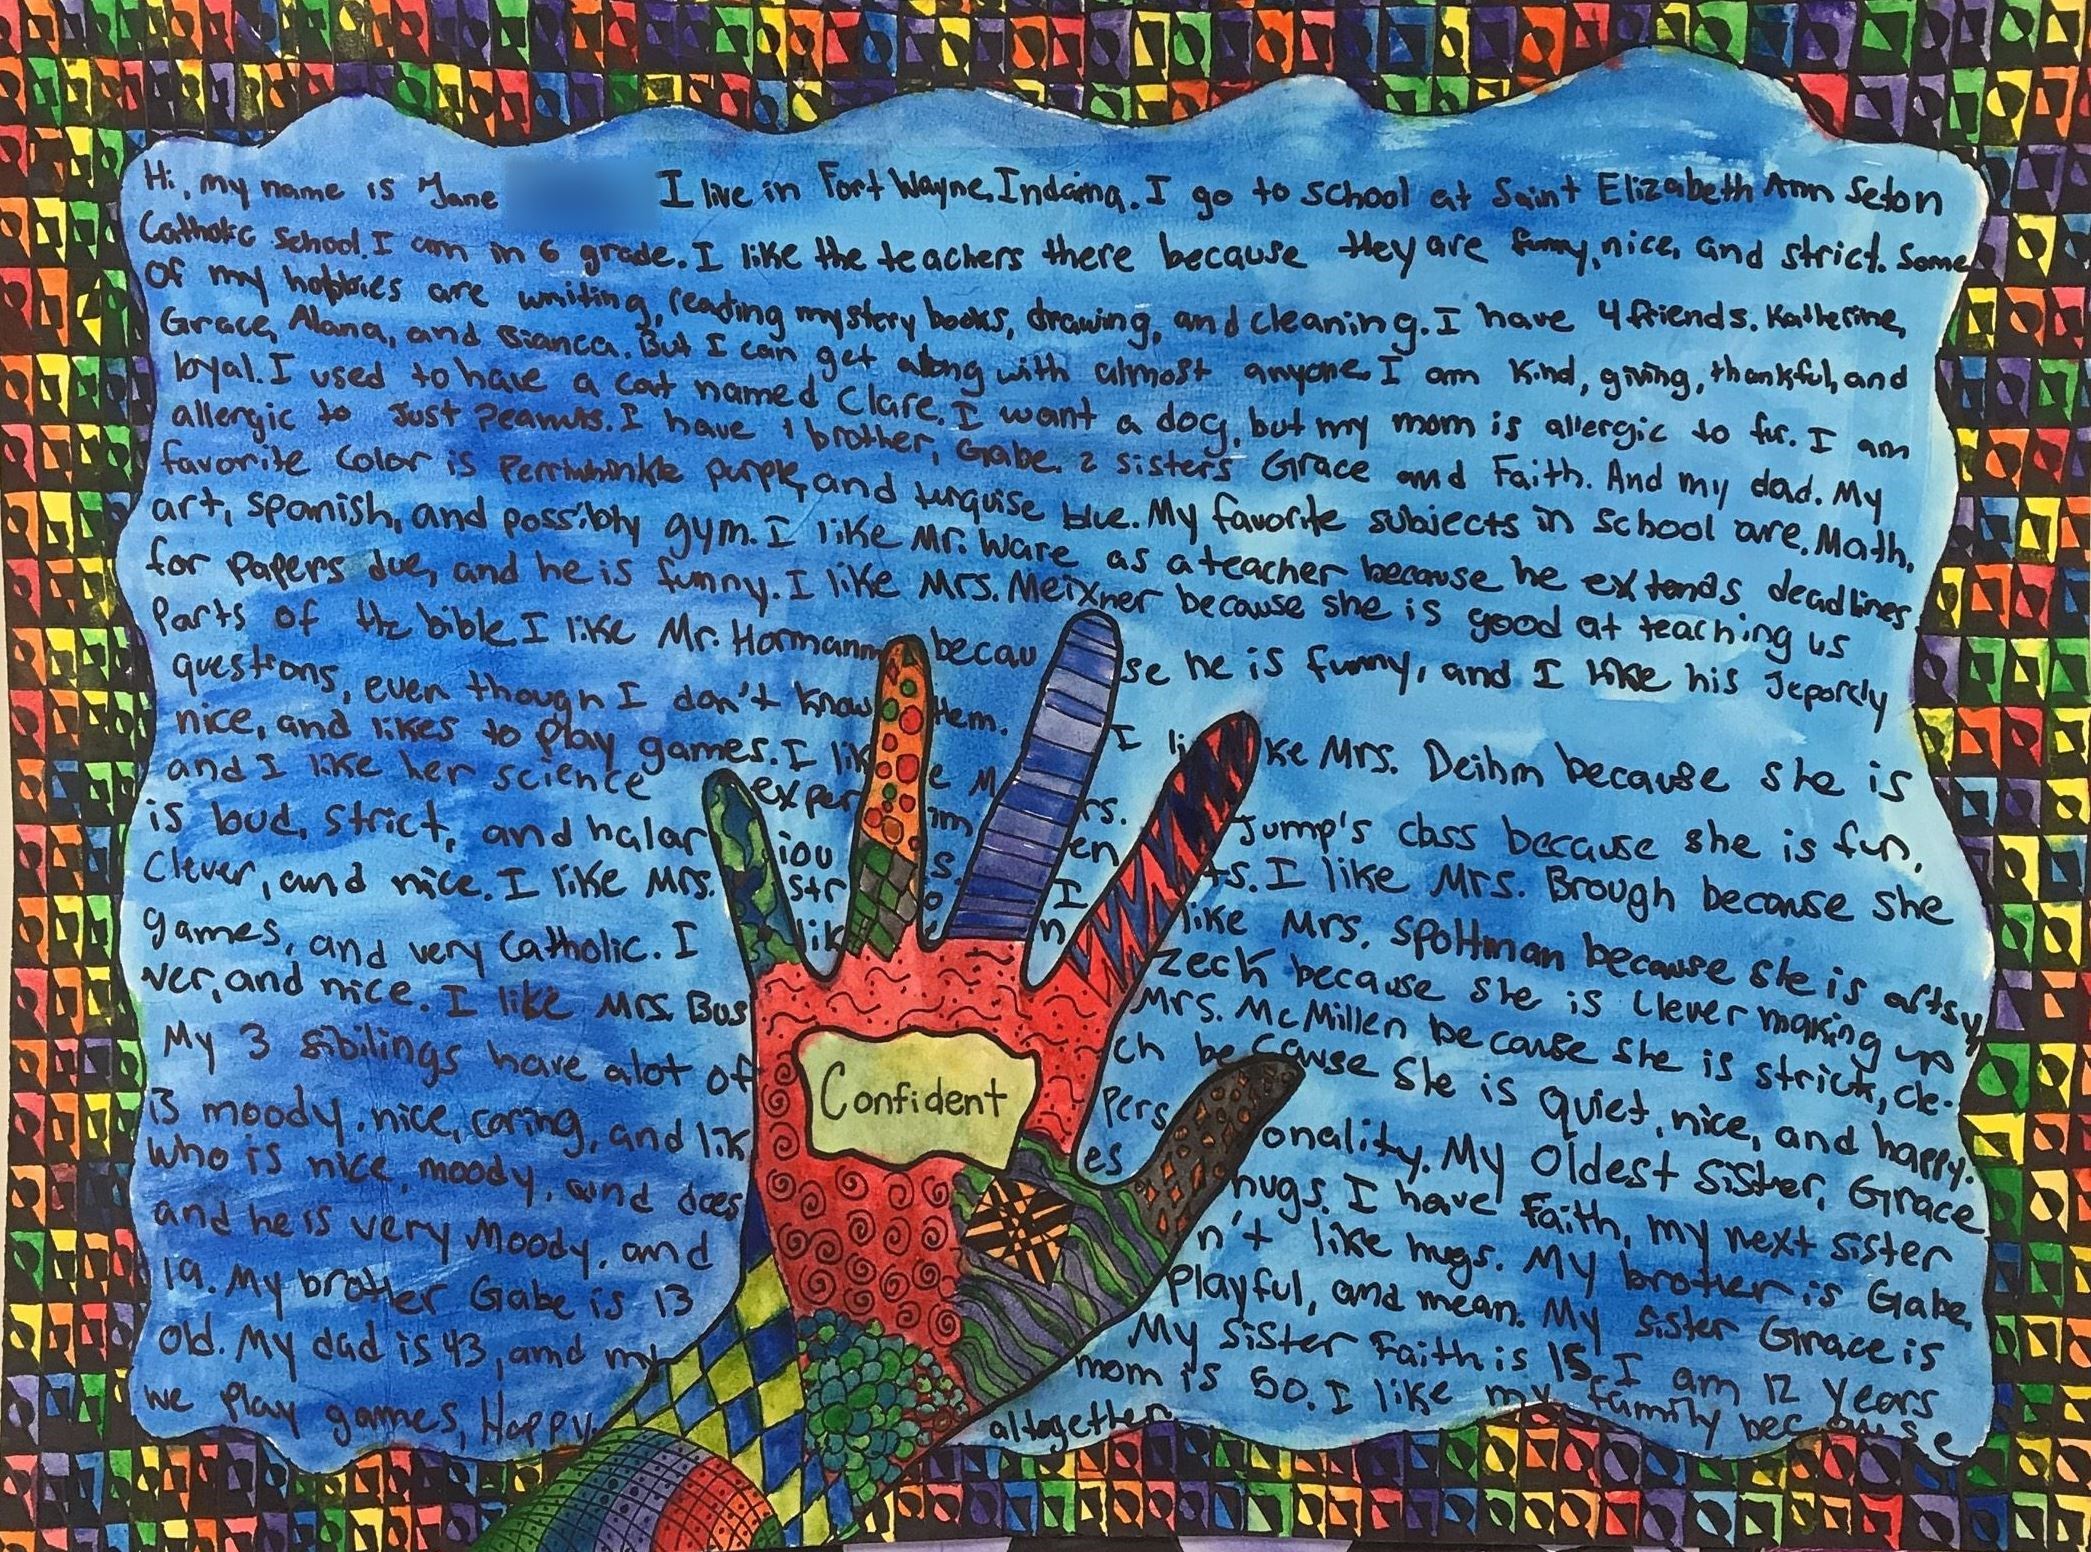 Hi, my name is Jane I live in Fort Wayne, Indaina. I go to school at Saint Elizabeth Ann Seton
Catholic School. I am in 6 grade. I like the teachers there because they are funny, nice, and strict. Some
of my hobbies are writing, reading mystery books, drawing, and cleaning. I have 4 friends. Katherine,
Grace, Alana, and Bianca. But I can get along with almost anyone. I am kind, giving, thankful, and
loyal. I used to have a cat named Clare. I want a dog, but my mom is allergic to fur. I am
allergic to just Peanuts. I have 1 brother, Gabe. 2 sisters Grace and Faith. And my dad. My
favorite color is Perriwhinkle purple, and turquise blue. My favorite subjects in school are, Math,
art, spanish, and possibly gym. I like Mr. Ware as a teacher because he extends deadlines
for papers due, and he is funny. I like Mrs. Meixner because she is good at teaching us
Parts of the bible. I like Mr. Hormann because he is funny, and I like his Jepordy
questions, even though I don't know them. I like Mrs. Deihm because she is
nice, and likes to play games. I like Mrs. Jump's class because she is fun,
and I like her science experiments. I like Mrs. Brough because she
is loud, strict, and halarious. I like Mrs. Spoltman because she is artsy,
clever, and nice. I like Mrs. Stronzeck because she is clever making up
games, and very Catholic. I like Mrs. McMillen because she is strict, cle-
ver, and nice. I like Mrs. Busch because she is quiet, nice, and happy.
My 3 sibilings have alot of personality. My oldest sister, Grace
is moody, nice, caring, and likes hugs. I have Faith, my next sister
who is nice, moody, and doesn't like hugs. My brother is Gabe,
and he is very moody, and playful, and mean. My sister Grace is
19. My brother Gabe is 13 My sister Faith is 15. I am 12 years
old. My dad is 43, and my mom is 50. I like my family because
we play games, Happy. altogether.
Confident